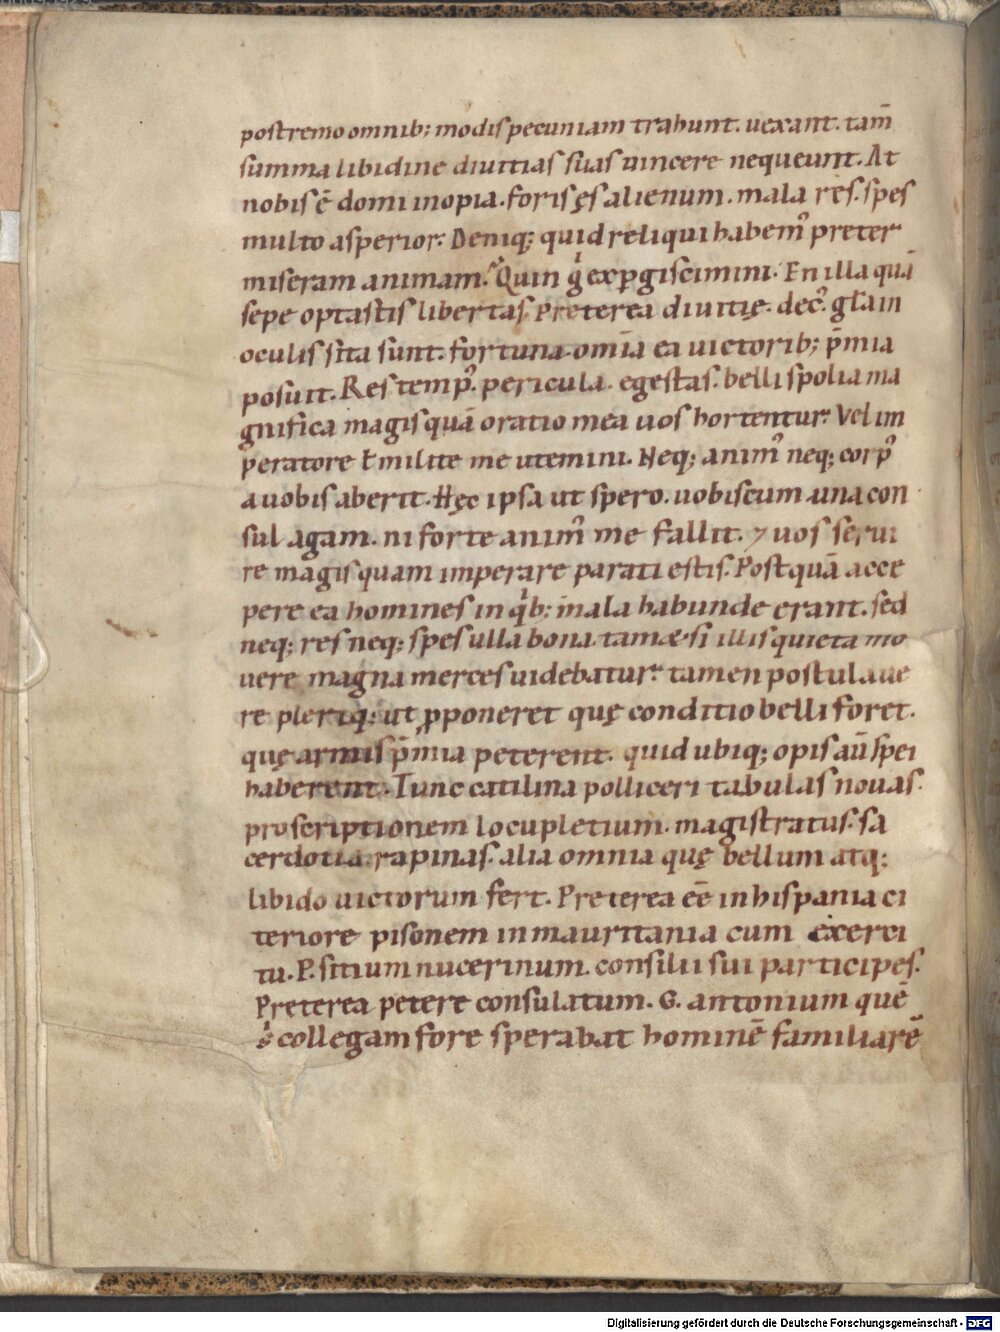 postremo omnib; modis pecuniam trahunt. uexant. tam̄
summa libidine diuitias suas uincere nequeunt. At
nobis ē domi inopia. foris ęs alienum. mala res. spes
multo asperior. Deniq; quid reliqui habem᾿ preter
miseram animam. Quin gͥ exꝑgiscimini. En illa quā
sepe optastis libertas. Preterea diuitię. dec᾿. gl̄a in
oculis sita sunt. fortuna omīa ea uictorib; p̄mia
posuit. Res temp᾿. pericula. egestas. belli spolia ma
gnifica magis quā oratio mea uos hortentur. Vel im
peratore ł milite me utemini. Neq; anim᾿ neq; corp᾿
a uobis aberit. Hęc ipsa ut spero. uobiscum una con
sul agam. ni forte anim᾿ me fallit. ⁊ uos serui
re magis quam imperare parati estis. Postquā acce
pere ea homines in qͥb; mala habunde erant. sed
neq; res neq; spes ulla bona. tam&si illis quieta mo
uere magna merces uidebatur. tamen postulaue
re pleriq; ut ꝓponeret quę conditio belli foret.
quę armis p̄mia peterent. quid ubiq; opis aū spei
haberent. Tunc catilina polliceri tabulas nouas.
proscriptionem locupletium. magistratus. sa
cerdotia. rapinas. alia omnia quę bellum atq;
libido uictorum fert. Preterea eē in hispania ci
teriore pisonem in mauritania cum exerci
tu. P. sitium nucerinum. consilii sui participes.
Preterea petere consulatum. G. antonium quē
sͥ collegam fore sperabat hominē familiarē
Digitalisierung gefördert durch die Deutsche Forschungsgemeinschaft - DFG